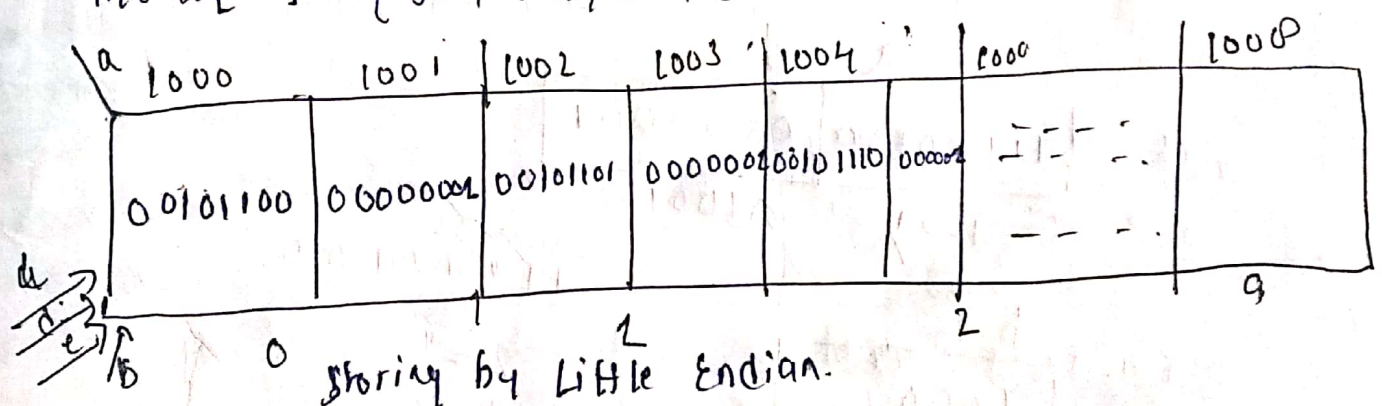 a 1000 1001 1002 1003 1004 1000 1008
00101100 00000001 00101101 00000001 00101110 000001
d
e
b 0 1 2 9
storing by Little Endian.